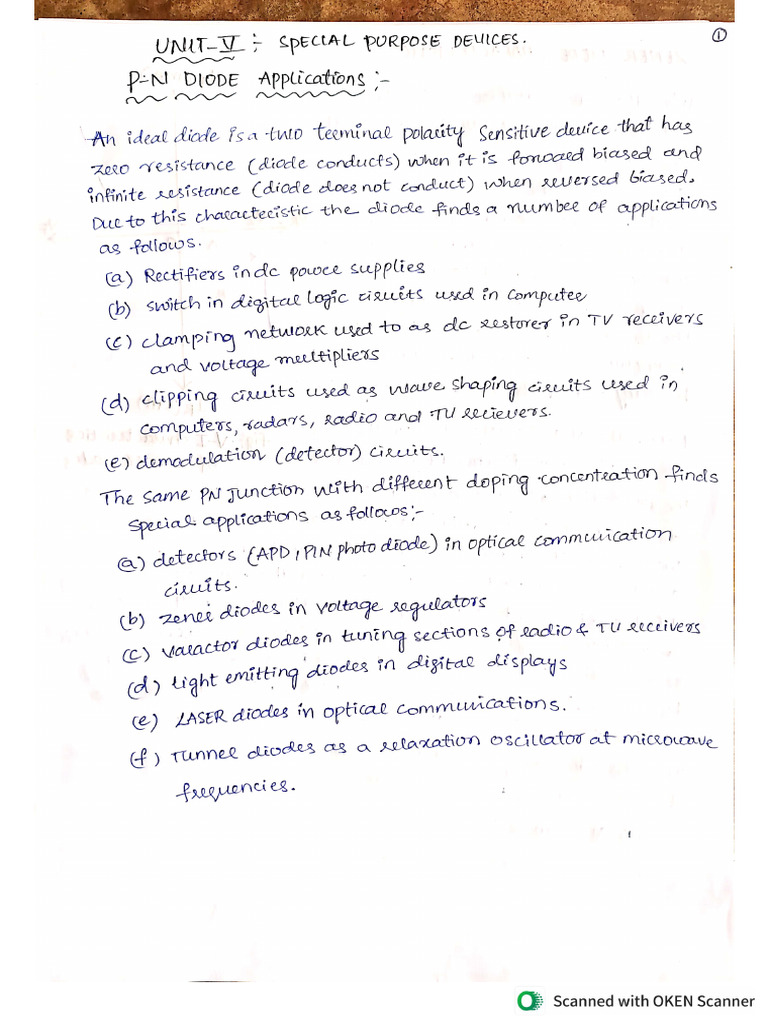 UNIT-V :- SPECIAL PURPOSE DEVICES.
1
P-N DIODE Applications :-
An ideal diode is a two terminal polarity sensitive device that has
zero resistance (diode conducts) when it is forward biased and
infinite resistance (diode does not conduct) when reversed biased.
Due to this characteristic the diode finds a number of applications
as follows.
(a) Rectifiers in dc power supplies
(b) switch in digital logic circuits used in computer
(c) clamping network used to as dc restorer in TV receivers
and voltage multipliers
(d) clipping circuits used as wave shaping circuits used in
computers, radars, radio and TV recievers.
(e) demodulation (detector) circuits.
The same PN junction with different doping concentration finds
special applications as follows:-
(a) detectors (APD, PIN photo diode) in optical communication
circuits.
(b) zener diodes in voltage regulators
(c) varactor diodes in tuning sections of radio & TV receivers
(d) light emitting diodes in digital displays
(e) LASER diodes in optical communications.
(f) Tunnel diodes as a relaxation oscillator at microwave
frequencies.
Scanned with OKEN Scanner